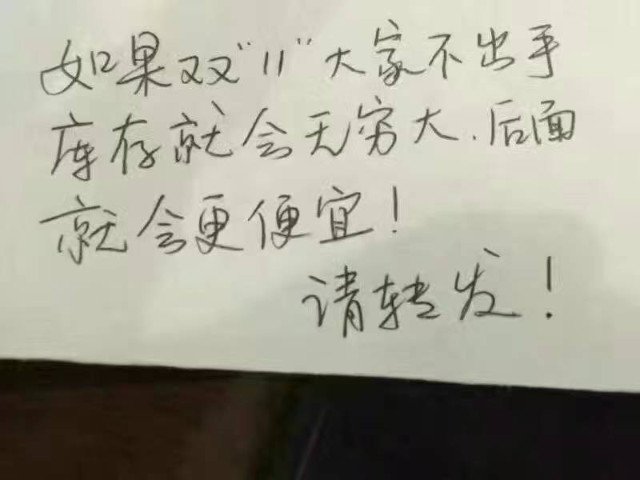 如果双"11"大家不出手
库存就会无穷大.后面
就会更便宜!
请转发!